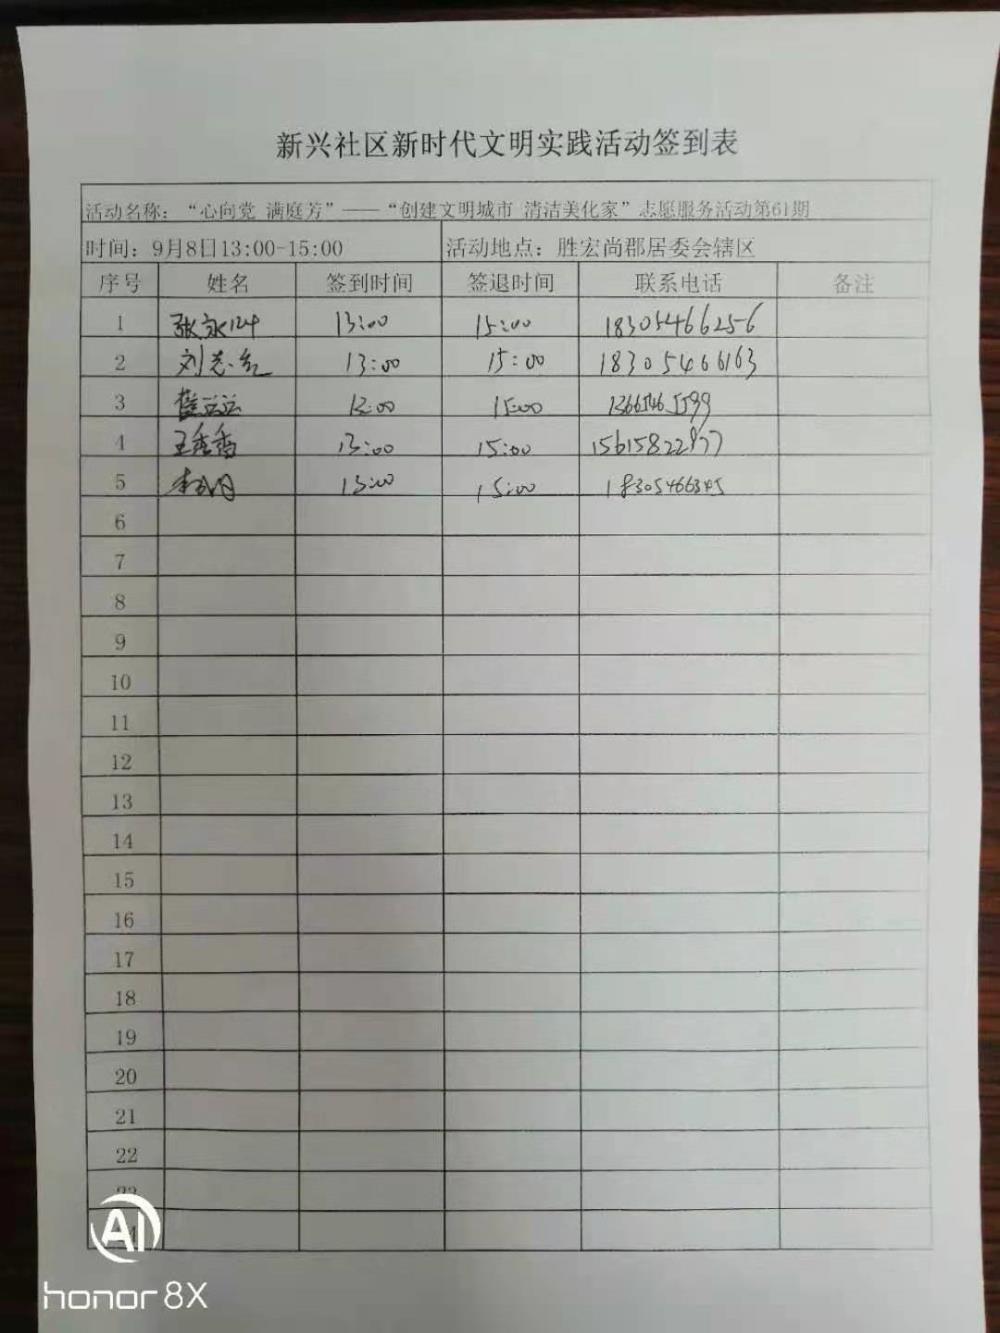 新兴社区新时代文明实践活动签到表
活动名称：“心向党 满庭芳”——“创建文明城市 清洁美化家”志愿服务活动第61期
时间：9月8日13:00-15:00 活动地点：胜宏尚郡居委会辖区
序号 姓名 签到时间 签退时间 联系电话 备注
1 张永 13:00 15:00 18305466256
2 刘志 13:00 15:00 18305466163
3 13:00 15:00
4 王秀香 13:00 15:00 15615822877
5 李 13:00 15:00 18305466345
6
7
8
9
10
11
12
13
14
15
16
17
18
19
20
21
22
23
AI
honor 8X